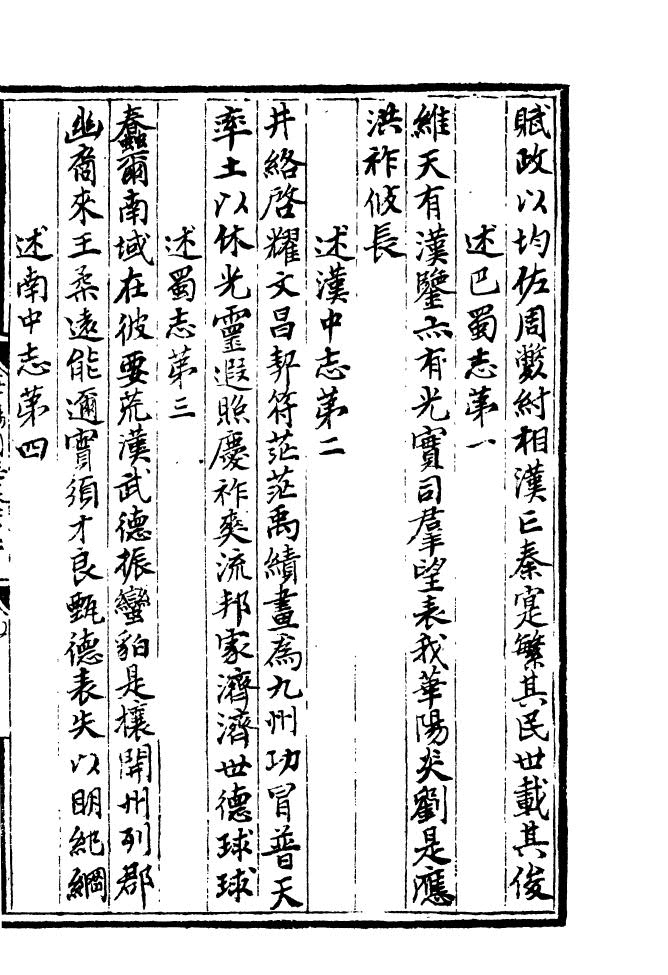 賦政以均佐周斃紂相漢亡秦寔繁其民世載其俊
述巴蜀志第一
維天有漢鑒亦有光實司羣望表我華陽炎劉是應
洪祚攸長
述漢中志第二
井絡啓耀文昌契符茫茫禹績畫爲九州功冒普天
率土以休光靈遐照慶祚爽流邦家濟濟世德球球
述蜀志第三
蠢爾南域在彼要荒漢武德振蠻貊是攘開州列郡
幽裔來王柔遠能邇實須才良甄德表失以明紀綱
述南中志第四